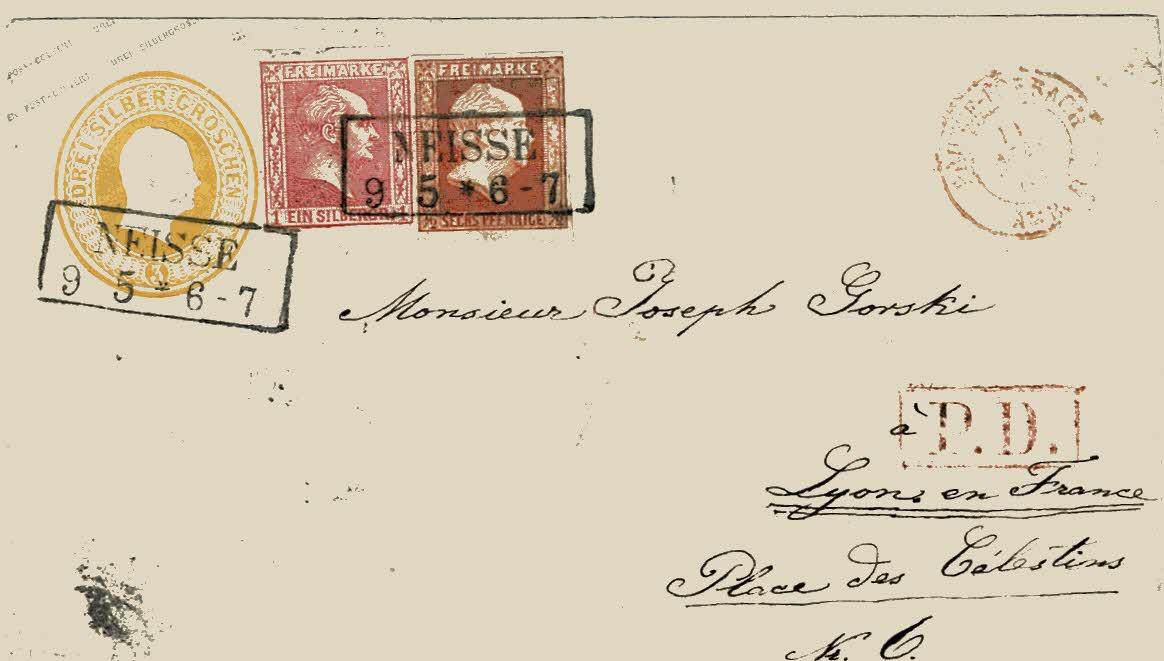 POST-COUVERT DREI SILBERGROSCHEN
DREI SILBER GROSCHEN
3
FREIMARKE
1 EIN SILBERGR. 1
FREIMARKE
SECHSPFENNIGE
NEISSE
9 5 * 6-7
NEISSE
9 5 * 6-7
Monsieur Joseph Gorski
à P.D.
Lyon, en France
Place des Célestins
Nr. 6.